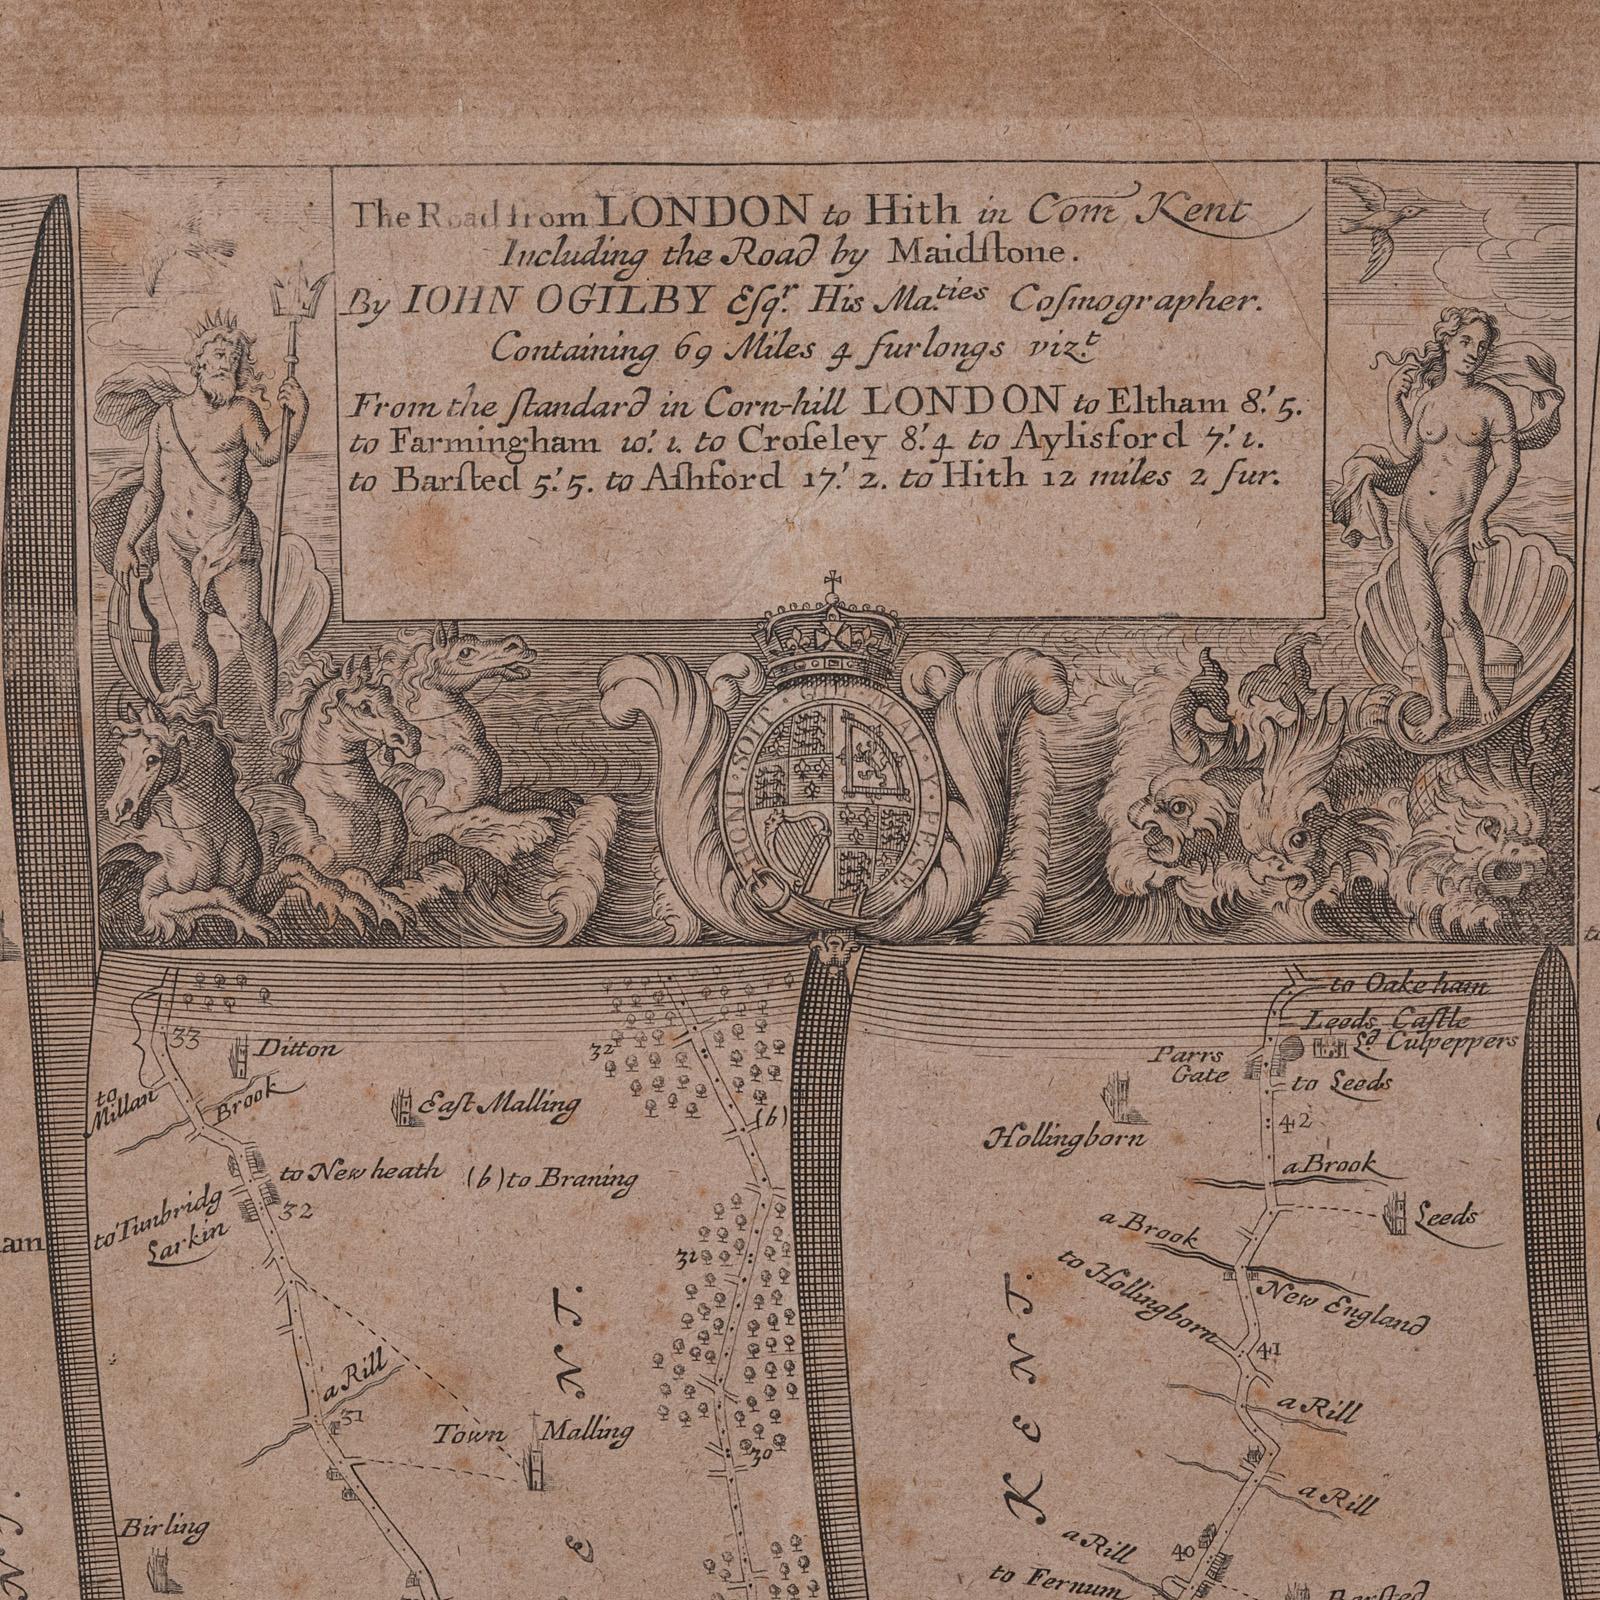 The Road from LONDON to Hith in Com̄ Kent
Including the Road by Maidſtone.
By IOHN OGILBY Eſqr. His Ma.ties Coſmographer.
Containing 69 Miles 4 furlongs viz.t
From the ſtandard in Corn-hill LONDON to Eltham 8.' 5.
to Farmingham 10.' 1. to Croſeley 8.' 4 to Aylisford 7.' 1.
to Barſted 5.' 5. to Aſhford 17.' 2. to Hith 12 miles 2 fur.
HONI · SOIT · QUI · MAL · Y · PENSE
33
Ditton
to Millan
Brook
East Malling
to New heath
(b) to Braning
32
to Tunbridg
Larkin
a Rill
31
Town Malling
Birling
32
(b)
31
30
K E N T.
to Oakeham
Leeds Caſtle
Ld. Culpeppers
Parrs
Gate
to Leeds
Hollingborn
42
a Brook
Leeds
a Brook
to Hollingborn
New England
41
a Rill
a Rill
a Rill
40
to Fernum
Barſted
E N T.
am